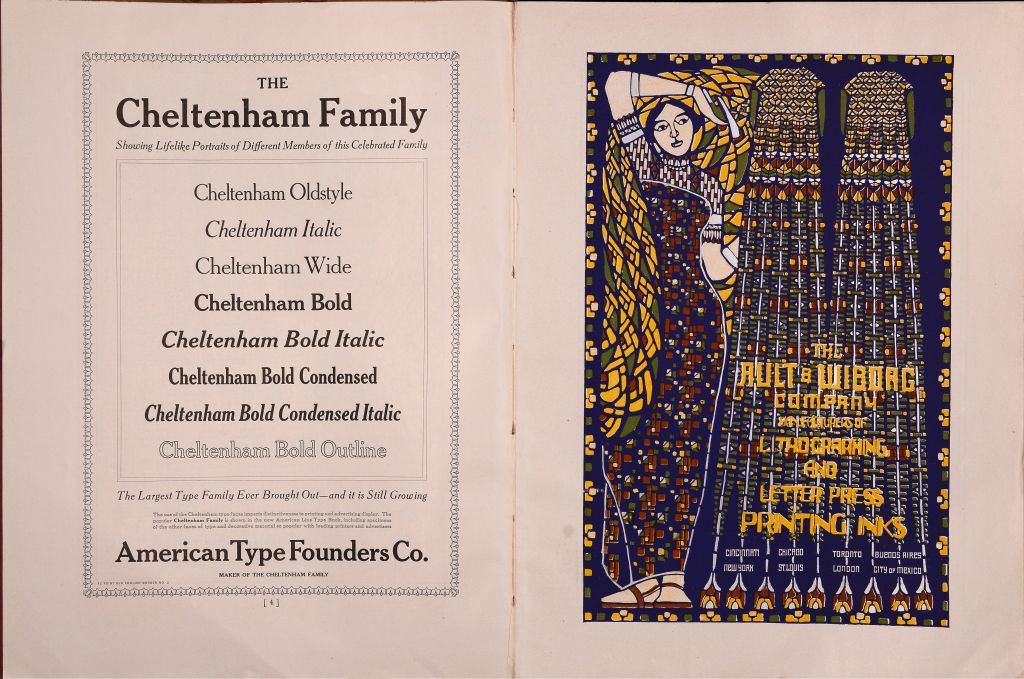 THE
Cheltenham Family
Showing Lifelike Portraits of Different Members of this Celebrated Family
Cheltenham Oldstyle
Cheltenham Italic
Cheltenham Wide
Cheltenham Bold
Cheltenham Bold Italic
Cheltenham Bold Condensed
Cheltenham Bold Condensed Italic
Cheltenham Bold Outline
The Largest Type Family Ever Brought Out—and it is Still Growing
The use of the Cheltenham type faces imparts distinctiveness to printing and advertising display. The
popular Cheltenham Family is shown in the new American Line Type Book, including specimens
of the other faces of type and decorative material so popular with leading printers and advertisers
American Type Founders Co.
MAKER OF THE CHELTENHAM FAMILY
12 POINT OLD ENGLISH BORDER NO. 2
[ 4 ]
THE
AULT & WIBORG
COMPANY
MANUFACTURERS OF
LITHOGRAPHING
AND
LETTER PRESS
PRINTING INKS
CINCINNATI CHICAGO TORONTO BUENOS AIRES
NEW YORK ST. LOUIS LONDON CITY OF MEXICO